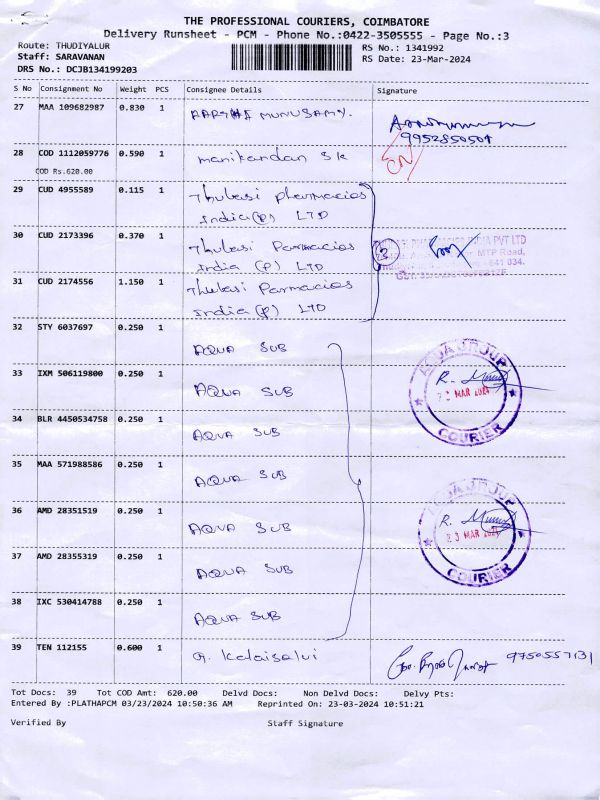 THE PROFESSIONAL COURIERS, COIMBATORE
Delivery Runsheet - PCM - Phone No.:0422-3505555 - Page No.:3
Route: THUDIYALUR RS No.: 1341992
Staff: SARAVANAN RS Date: 23-Mar-2024
DRS No.: DCJB134199203
S No Consignment No Weight PCS Consignee Details Signature
27 MAA 109682987 0.830 1 AARTHI MUNUSAMY.
9952850504
28 COD 1112059776 0.590 1 manikandan s k
COD Rs.620.00
29 CUD 4955589 0.115 1 Thulasi pharmacies
India (P) LTD
30 CUD 2173396 0.370 1 Thulasi Parmacies
India (P) LTD
3
PVT LTD
MTP Road,
641 034.
31 CUD 2174556 1.150 1 Thulasi Parmacies
India (P) LTD
32 STY 6037697 0.250 1 AQUA SUB
33 IXM 506119800 0.250 1 AQUA SUB
AQUA GROUP
R.
23 MAR 2024
COURIER
34 BLR 4450534758 0.250 1 AQUA SUB
35 MAA 571988586 0.250 1 AQUA SUB
36 AMD 28351519 0.250 1 AQUA SUB
AQUA GROUP
R.
23 MAR 2024
COURIER
37 AMD 28355319 0.250 1 AQUA SUB
38 IXC 530414788 0.250 1 AQUA SUB
39 TEN 112155 0.600 1 G. Kalaiselvi
9750557131
Tot Docs: 39 Tot COD Amt: 620.00 Delvd Docs: Non Delvd Docs: Delvy Pts:
Entered By :PLATHAPCM 03/23/2024 10:50:36 AM Reprinted On: 23-03-2024 10:51:21
Verified By Staff Signature